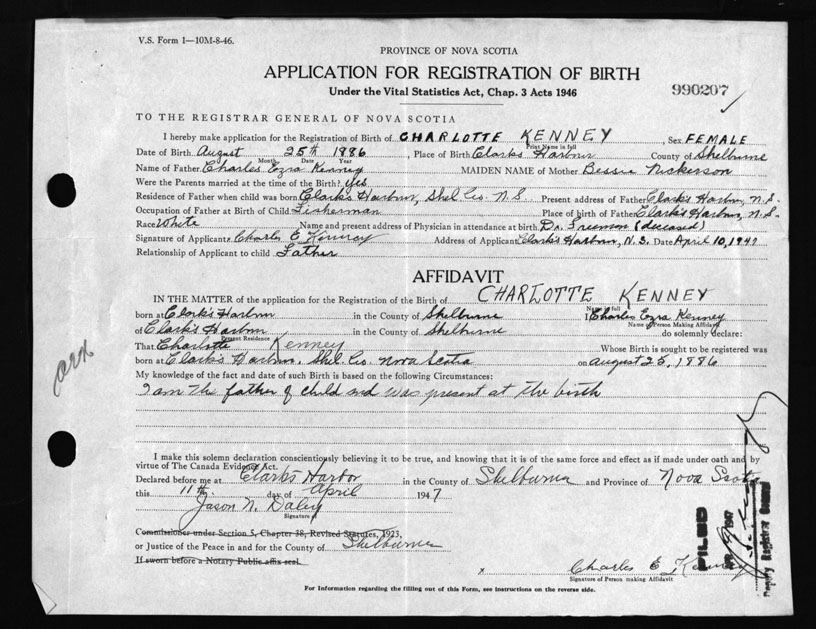 V.S. Form 1—10M-8-46.
PROVINCE OF NOVA SCOTIA
APPLICATION FOR REGISTRATION OF BIRTH
Under the Vital Statistics Act, Chap. 3 Acts 1946
990207
TO THE REGISTRAR GENERAL OF NOVA SCOTIA
I hereby make application for the Registration of Birth of CHARLOTTE KENNEY, Sex FEMALE
Print Name in full
Date of Birth August 25th 1886, Place of Birth Clarks Harbour County of Shelburne
Month Date Year
Name of Father Charles Ezra Kenney MAIDEN NAME of Mother Bessie Nickerson
Were the Parents married at the time of the Birth? yes
Residence of Father when child was born Clark's Harbour, Shel. Co. N.S. Present address of Father Clark's Harbour, N.S.
Occupation of Father at Birth of Child Fisherman Place of birth of Father Clark's Harbour, N.S.
Race White Name and present address of Physician in attendance at birth Dr. Freeman (deceased)
Signature of Applicant Charles E Kenney Address of Applicant Clark's Harbour, N.S. Date April 10, 1947
Relationship of Applicant to child Father
AFFIDAVIT
IN THE MATTER of the application for the Registration of the Birth of CHARLOTTE KENNEY
Name in full
born at Clark's Harbour in the County of Shelburne I Charles Ezra Kenney
Name of Person Making Affidavit
of Clark's Harbour in the County of Shelburne do solemnly declare:
Present Residence
That Charlotte Kenney Whose Birth is sought to be registered was
born at Clark's Harbour, Shel. Co. Nova Scotia on August 25, 1886
My knowledge of the fact and date of such Birth is based on the following Circumstances:
I am the father of child and was present at the birth
I make this solemn declaration conscientiously believing it to be true, and knowing that it is of the same force and effect as if made under oath and by
virtue of The Canada Evidence Act.
Declared before me at Clark's Harbor in the County of Shelburne and Province of Nova Scotia
this 11th day of April 1947
Jason N. Daley
Signature of
Commissioner under Section 5, Chapter 38, Revised Statutes, 1923,
or Justice of the Peace in and for the County of Shelburne
If sworn before a Notary Public affix seal.
x Charles E Kenney
Signature of Person making Affidavit
For Information regarding the filling out of this Form, see instructions on the reverse side.
FILED
Deputy Registrar General